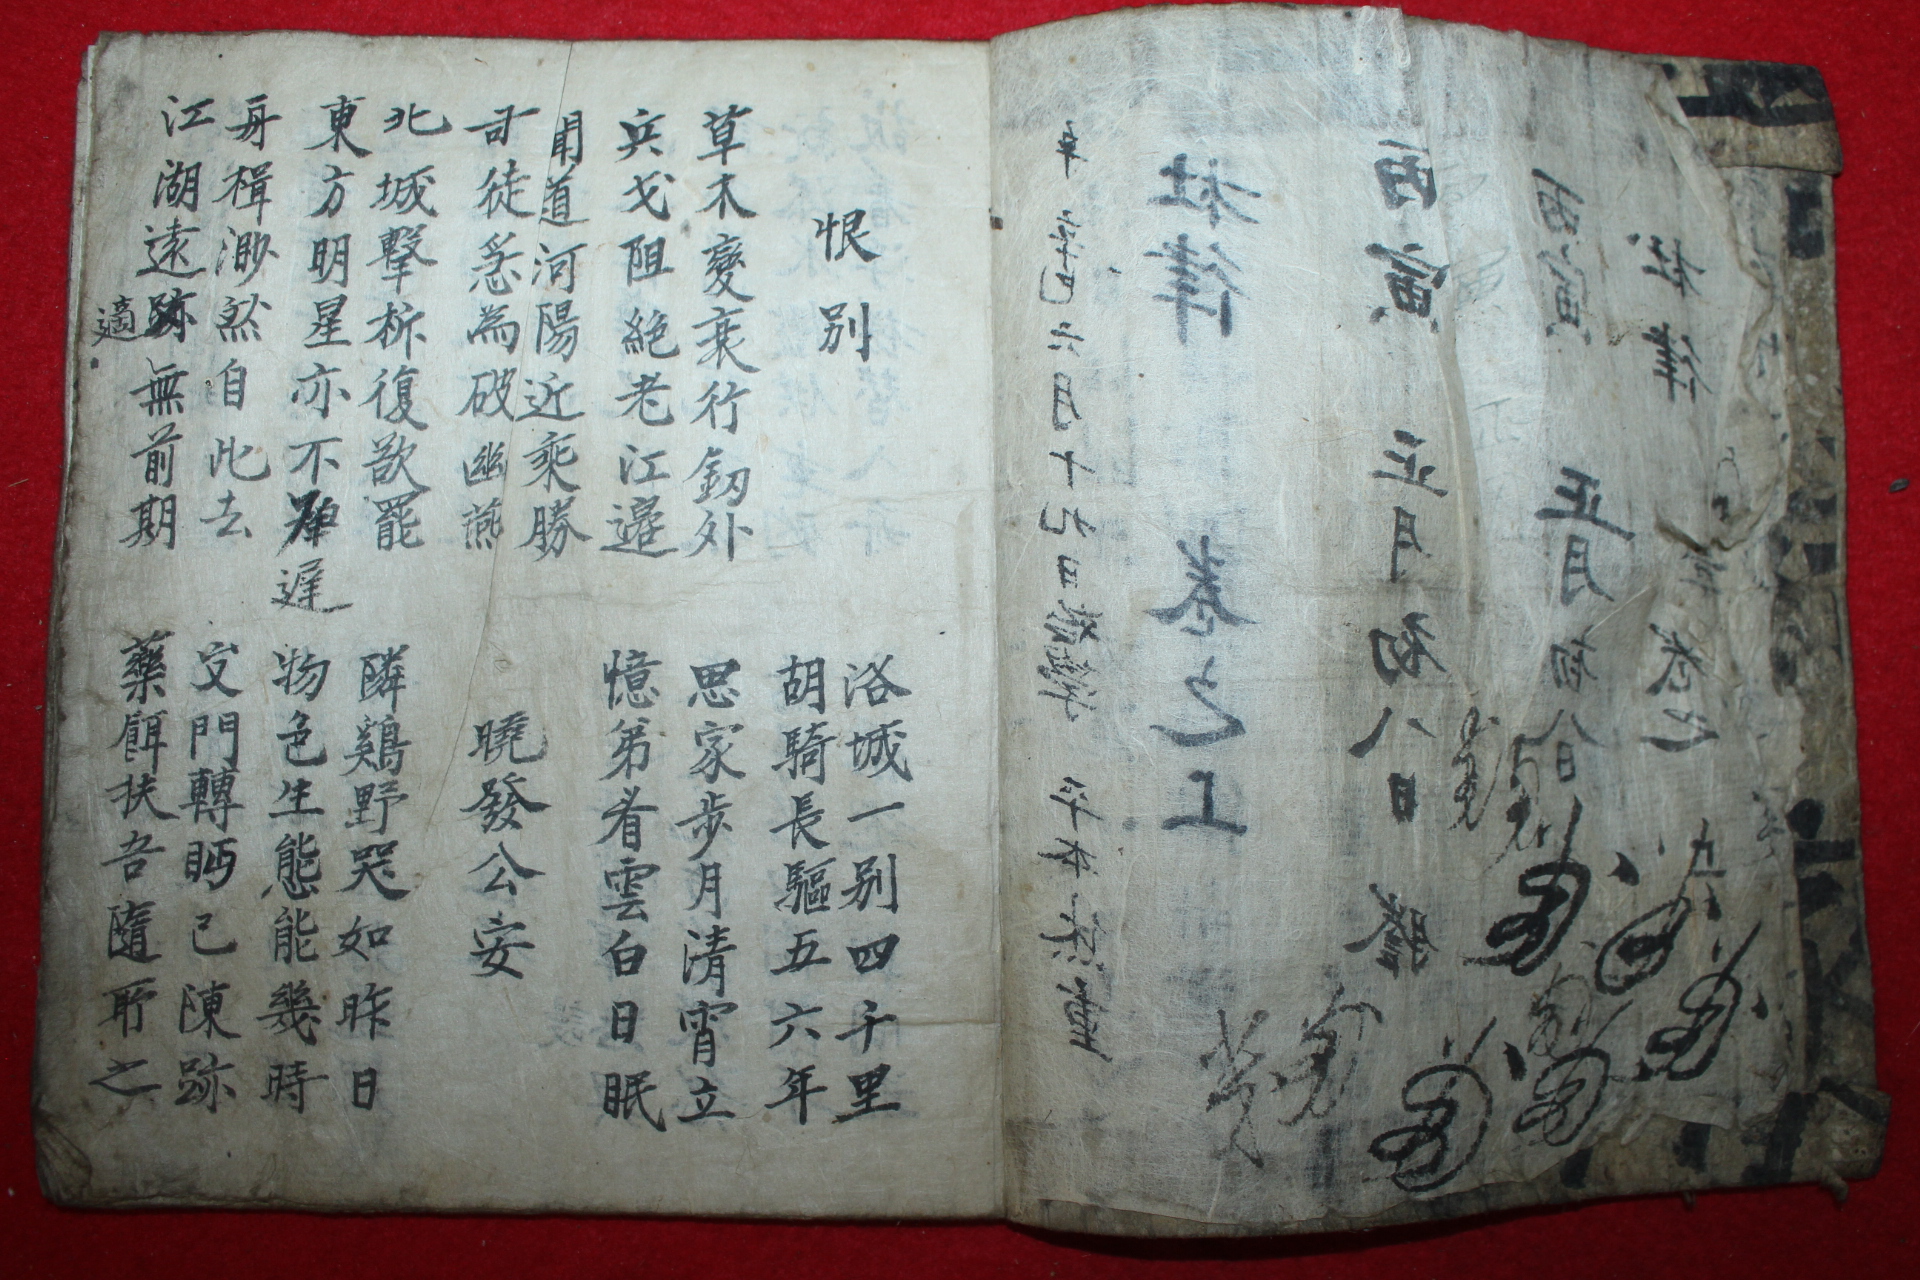 杜律 卷之
丙寅 正月初八日
丙寅 正月初八日 謄
杜律 卷之上
六月十九日
恨別
洛城一別四千里
胡騎長驅五六年
草木變衰行釰外
兵戈阻絕老江邊
思家步月清霄立
憶弟看雲白日眠
聞道河陽近乘勝
司徒急為破幽燕
曉發公安
北城擊柝復欲罷
東方明星亦不遲
隣鷄野哭如昨日
物色生態能幾時
舟楫渺然自此去
江湖遠適無前期
出門轉眄已陳跡
藥餌扶吾隨所之